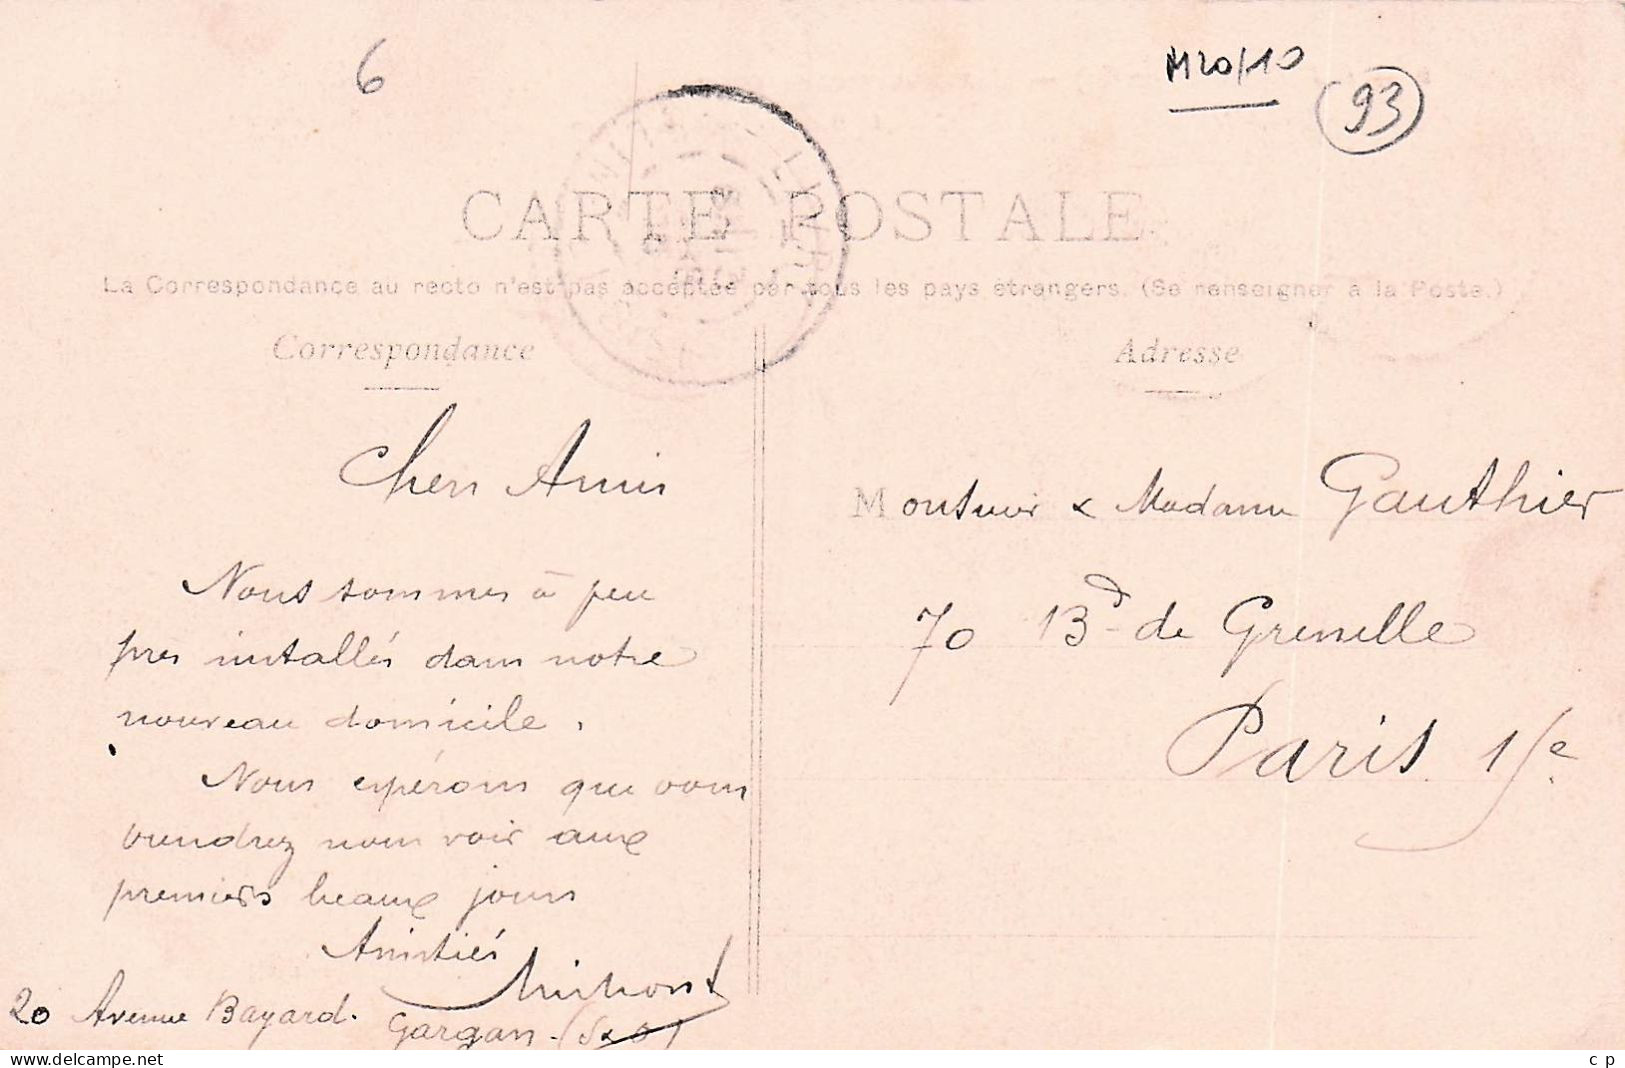 6
M20/10
93
CARTE POSTALE
La Correspondance au recto n'est pas acceptée par tous les pays étrangers. (Se renseigner à la Poste.)
Correspondance
Adresse
Chers Amis
Nous sommes à peu
près installés dans notre
nouveau domicile.
Nous espérons que vous
viendrez nous voir aux
premiers beaux jours
Amitiés
20 Avenue Bayard.
Gargan. (S & O)
Monsieur & Madame Gauthier
70 Bd de Grenelle
Paris 15e
www.delcampe.net
cp